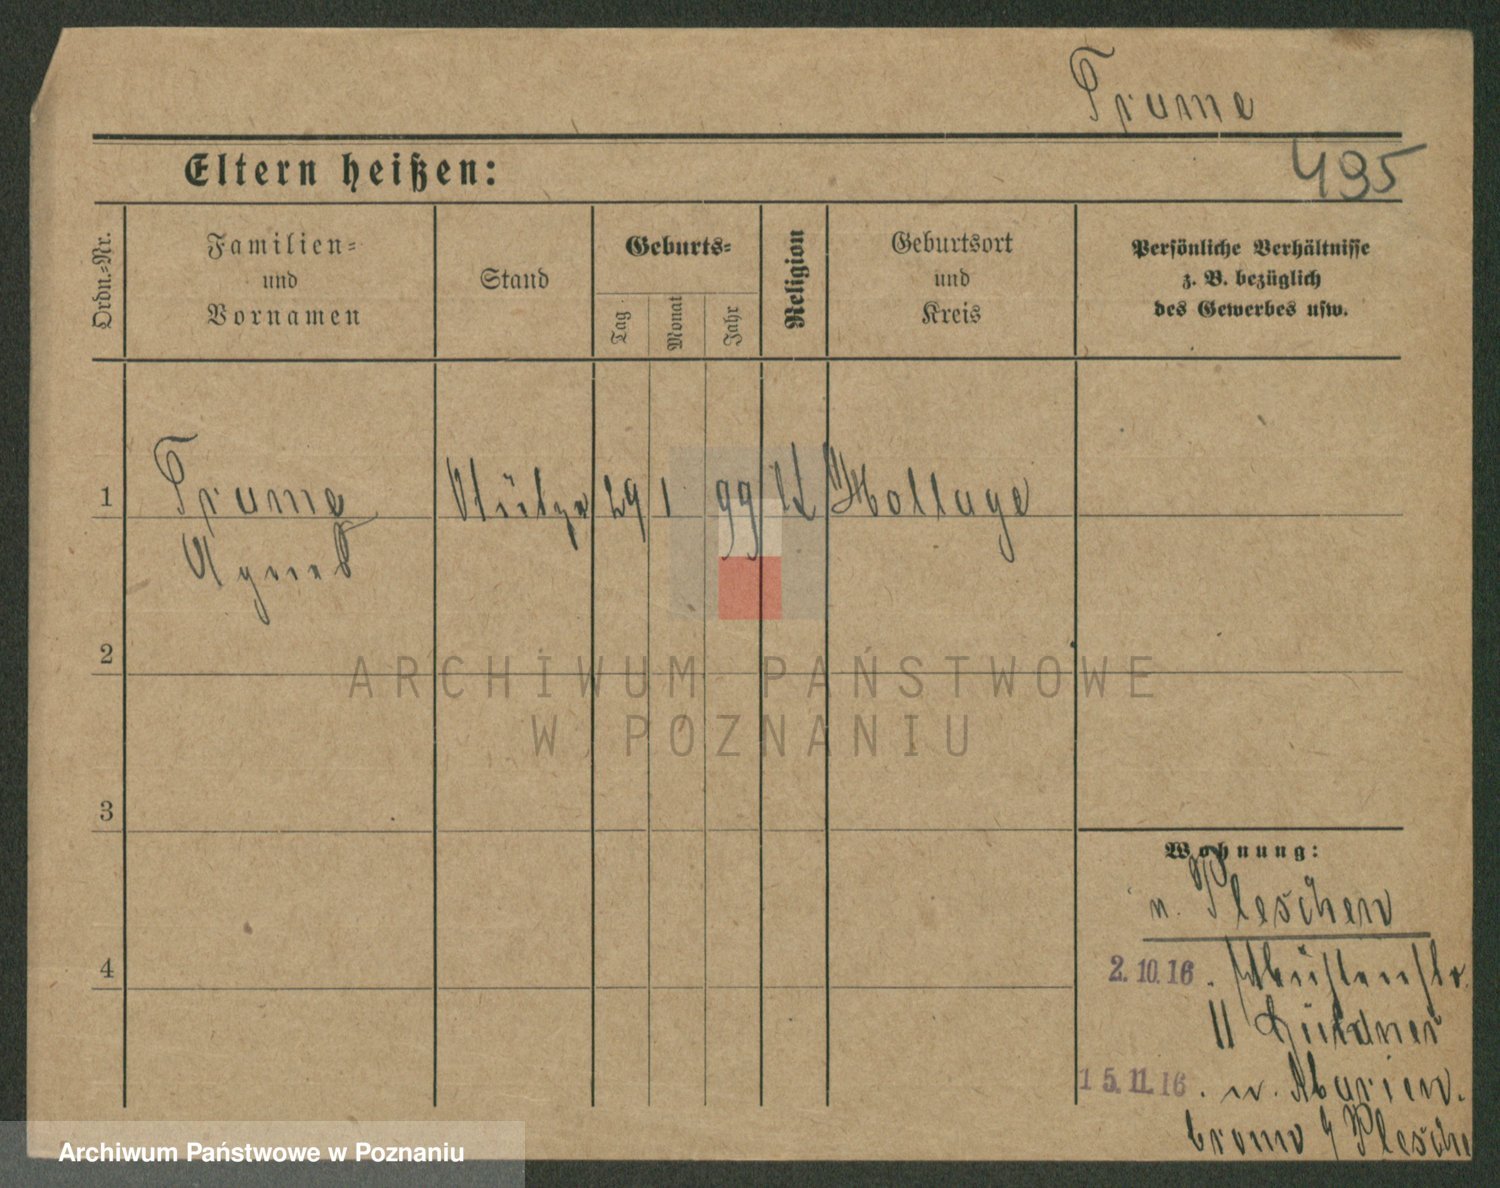 Prume
495
Eltern heißen:
Ordn.-Nr.
Familien- und Vornamen
Stand
Geburts-
Tag
Monat
Jahr
Religion
Geburtsort und Kreis
Persönliche Verhältnisse
z. B. bezüglich
des Gewerbes usw.
1
Prume Stütze 29 1 99
Agnes
2
ARCHIWUM PAŃSTWOWE
W POZNANIU
3
Wohnung:
n. Pleschen
4
2.10.16. Mühlenstr.
11
15.11.16. n. Marien.
bronn
Archiwum Państwowe w Poznaniu